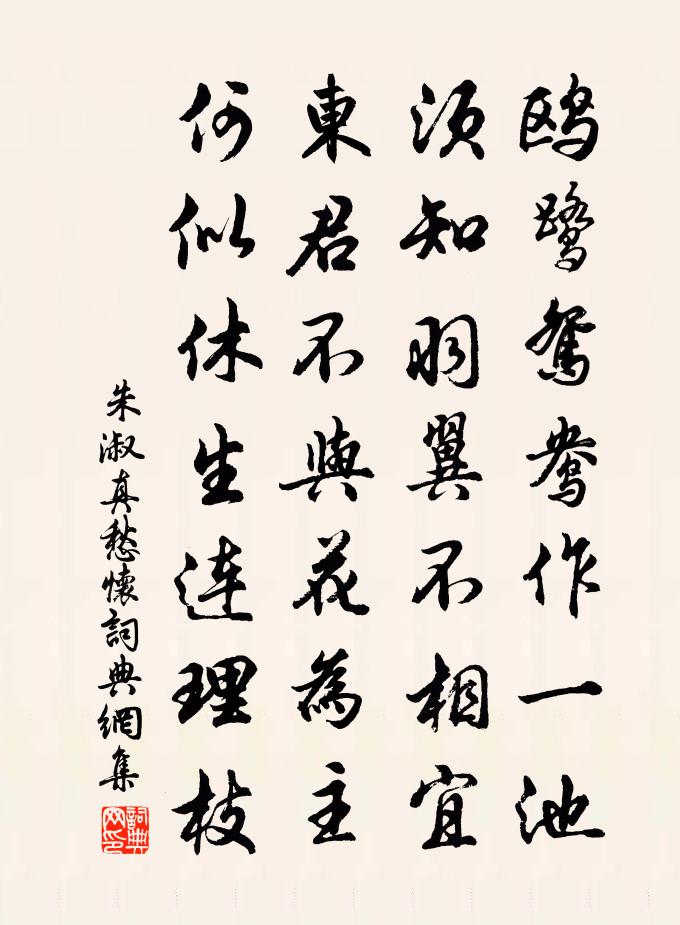 鸥鹭鸳鸯作一池
须知羽翼不相宜
東君不與花為主
何似休生連理枝
朱淑真愁懷詞典網集
詞典网印